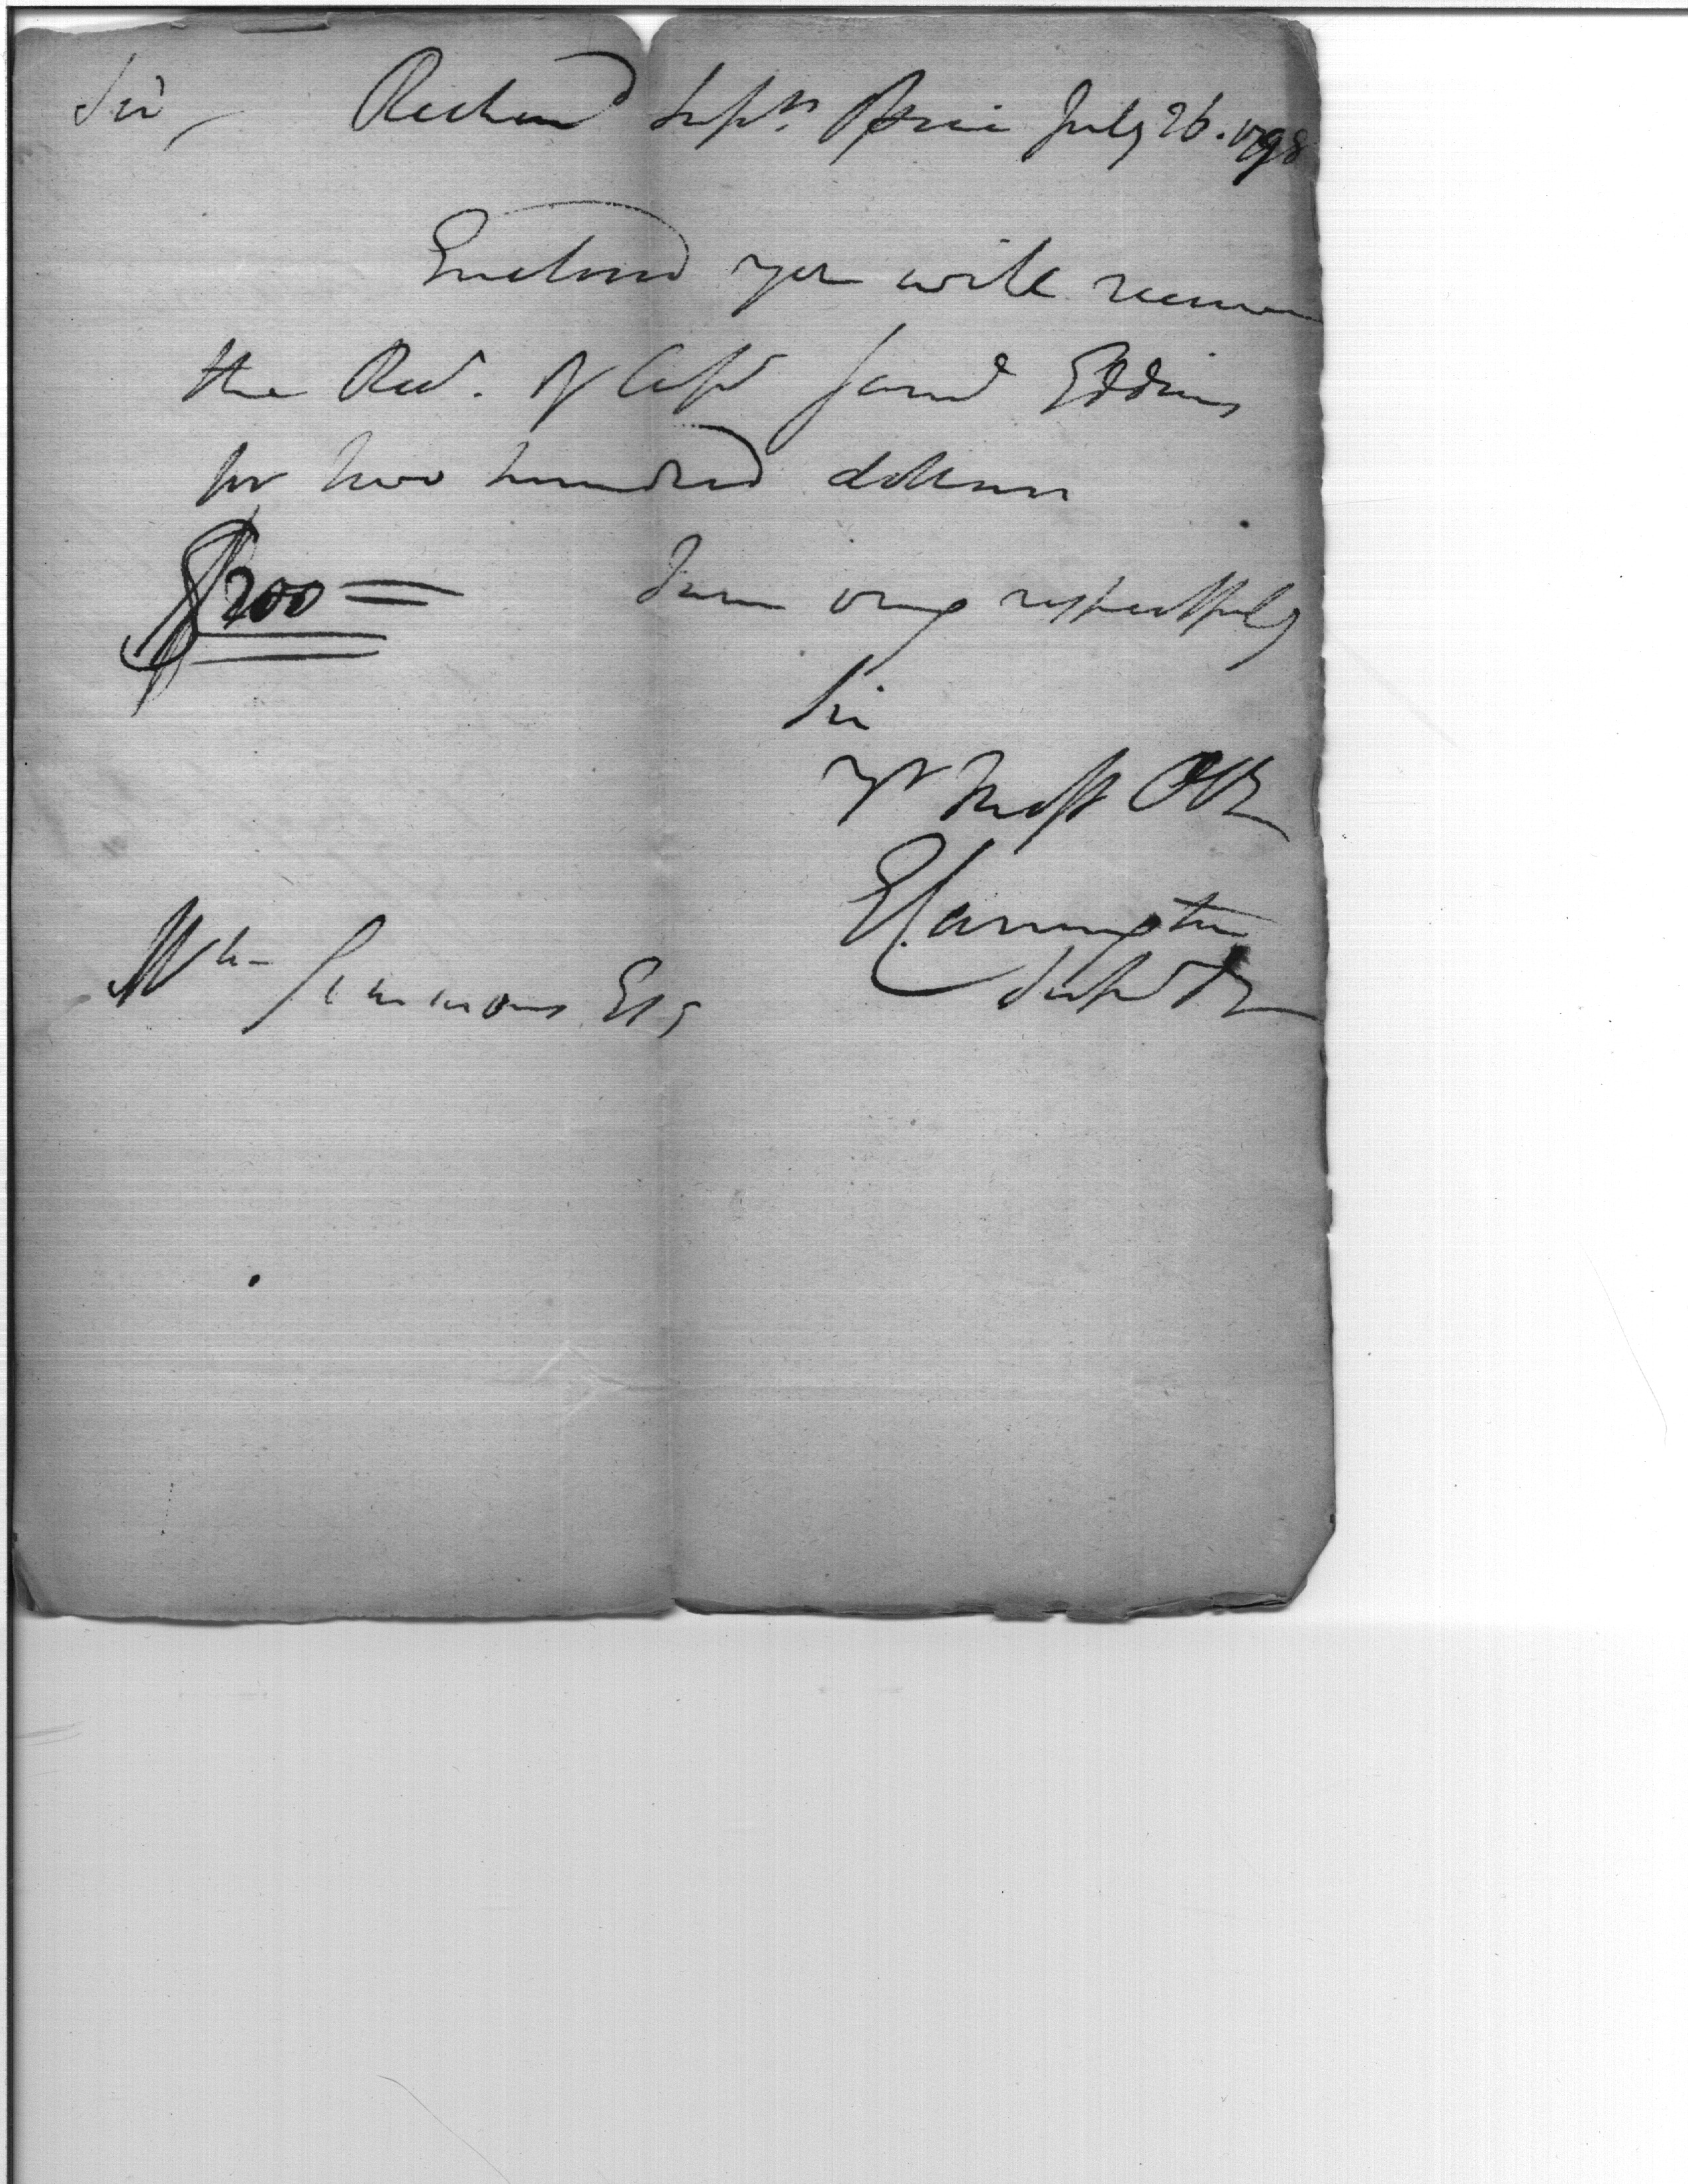 Sir, Richmond Suprs Office July 26. 1798
Enclosed you will receive
the Rect. of Capt Saml Eddins
for two hundred dollars
$200= I am very respectfully
Sir
yr Most Obt
E Carrington
Wm Simmons Esq